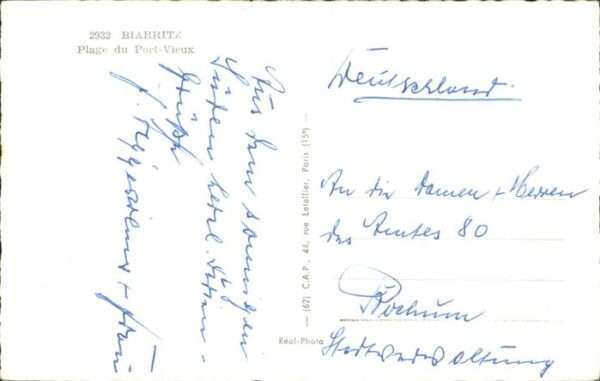 2932 BIARRITZ
Plage du Port-Vieux
Aus dem sonnigen
Süden herzl. Ferien-
grüße
+ Frau
— (67) C.A.P., 44, rue Letellier, Paris (15e) —
Real-Photo
Deutschland.
An die Damen + Herren
des Amtes 80
Bochum
Stadtverwaltung